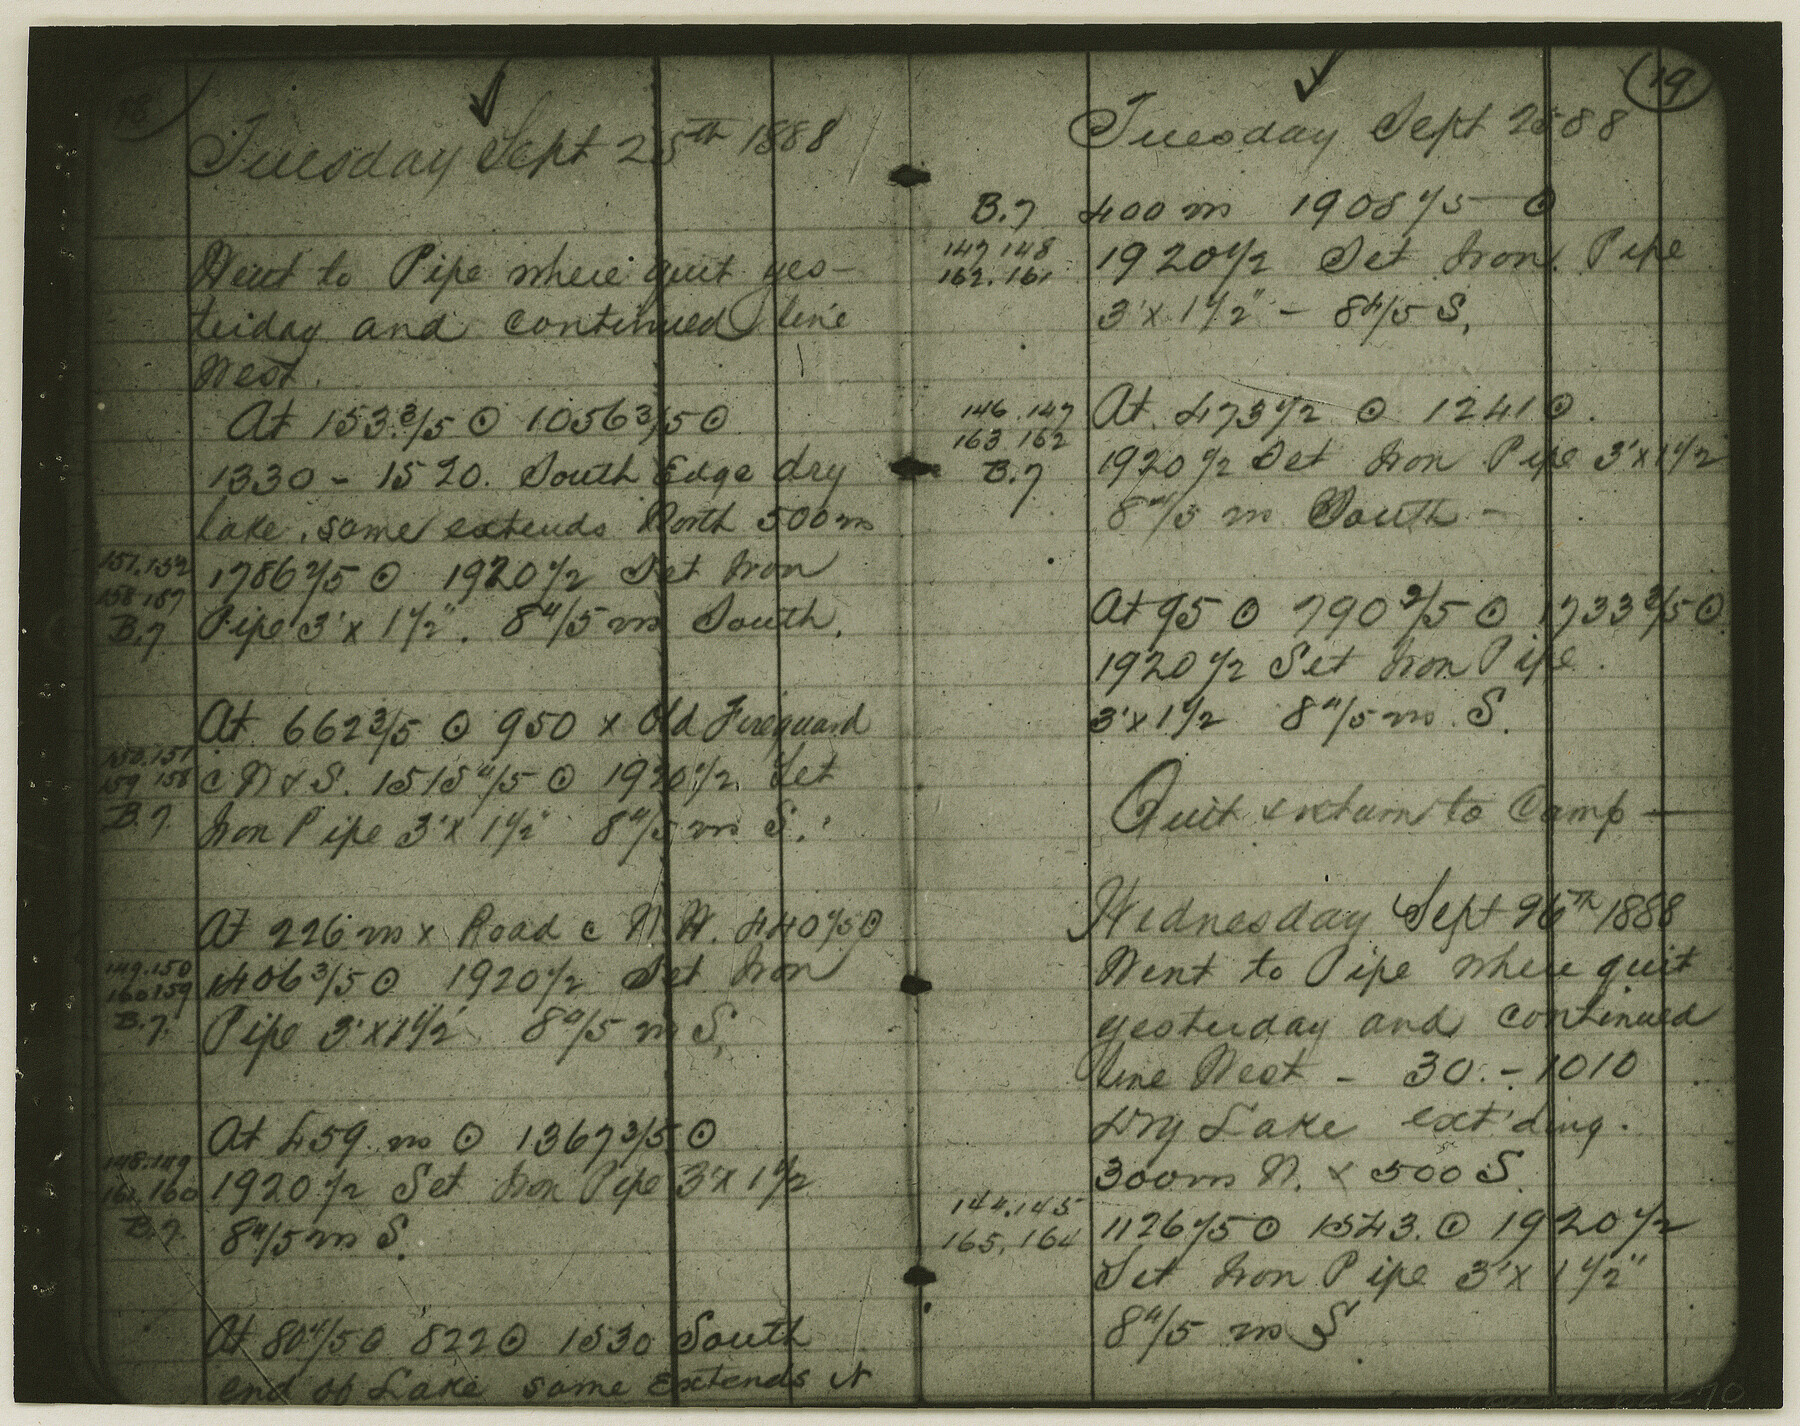 18
Tuesday Sept 25th 1888
Went to Pipe where quit yes-
terday and continued line
West.
At 153 3/5 ⊙ 1056 3/5 ⊙
1330 - 1520. South Edge dry
lake, same extends North 500 m
151.152
158 157
B.7
1786 2/5 ⊙ 1920 1/2 Set Iron
Pipe 3' x 1 1/2". 8 4/5 m South.
At 662 3/5 ⊙ 950 x Old Fireguard
150.151
159 158
B.7.
c N & S. 1515 4/5 ⊙ 1920 1/2 Set
Iron Pipe 3' x 1 1/2" 8 4/5 m S.
At 226 m x Road c N.W. 440 1/5 ⊙
149.150
160 159
B.7.
1406 3/5 ⊙ 1920 1/2 Set Iron
Pipe 3' x 1 1/2' 8 4/5 m S,
At 459 m ⊙ 1367 3/5 ⊙
148.149
161.160
B.7.
1920 1/2 Set Iron Pipe 3' x 1 1/2
8 4/5 m S.
At 80 4/5 ⊙ 822 ⊙ 1530 South
end of Lake same Extends N
19
Tuesday Sept 25 88
B.7 400 m 1908 1/5 ⊙
147 148
162.161
1920 1/2 Set Iron Pipe
3' x 1 1/2" - 8 4/5 S,
146.147
163 162
B.7
At 473 1/2 ⊙ 1241 ⊙.
1920 1/2 Set Iron Pipe 3' x 1 1/2
8 4/5 m South -
At 95 ⊙ 790 2/5 ⊙ 1733 3/5 ⊙
1920 1/2 Set Iron Pipe.
3' x 1 1/2 8 4/5 m. S.
Quit & return to Camp -
Wednesday Sept 26th 1888
Went to Pipe where quit
yesterday and continued
line West - 30. - 1010
Dry Lake ext'ding.
300 m N. & 500 S.
144.145
165, 164
1126 1/5 ⊙ 1543. ⊙ 1920 1/2
Set Iron Pipe 3' x 1 1/2"
8 4/5 m S